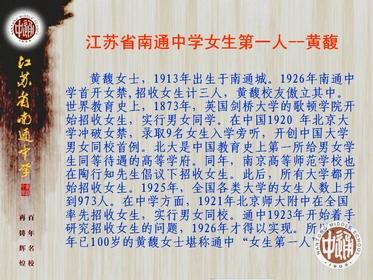 江苏省南通中学女生第一人--黄馥
黄馥女士，1913年出生于南通城。1926年南通中
学首开女禁，招收女生计三人，黄馥校友傲立其中。
世界教育史上，1873年，英国剑桥大学的歌顿学院开
始招收女生，实行男女同学。在中国1920 年北京大
学冲破女禁，录取9名女生入学旁听，开创中国大学
男女同校首例。北大是中国教育史上第一所给男女学
生同等待遇的高等学府。同年，南京高等师范学校也
在陶行知先生倡议下招收女生。此后，所有大学都开
始招收女生。1925年，全国各类大学的女生人数上升
到973人。在中学方面，1921年北京师大附中在全国
率先招收女生，实行男女同校。通中1923年开始着手
研究招收女生的问题，1926年才得以实现。所
年已100岁的黄馥女士堪称通中“女生第一人
江苏省南通中学
百年名校
再铸辉煌
MIDDLE SCHOOL